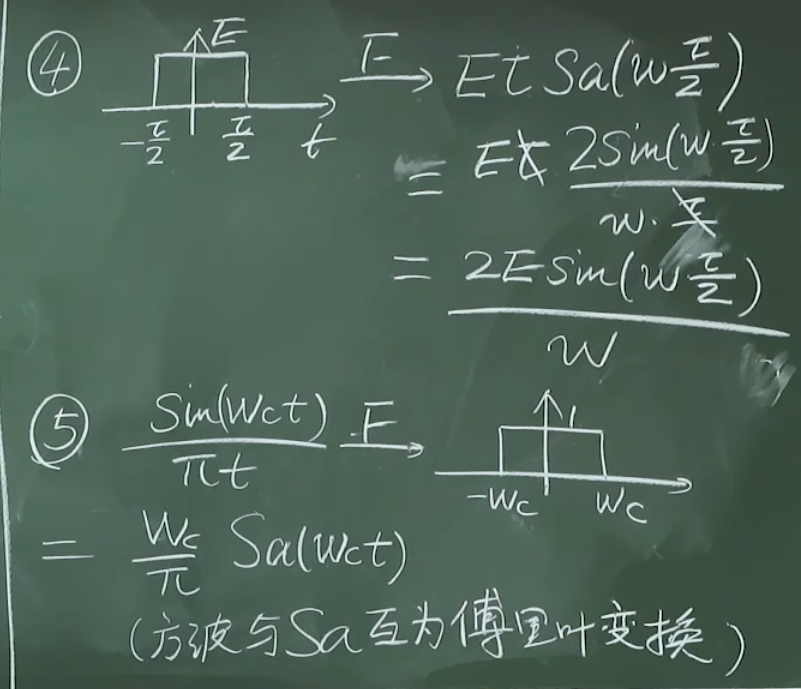 ④ E F→ Eτ Sa(w τ/2)
-τ/2 τ/2 t
= Eτ 2Sin(w·τ/2) / w·τ
= 2E Sin(w τ/2) / w
⑤ Sin(Wct) / πt F→ 1
-Wc Wc
= Wc/π Sa(Wct)
(方波与Sa互为傅里叶变换)